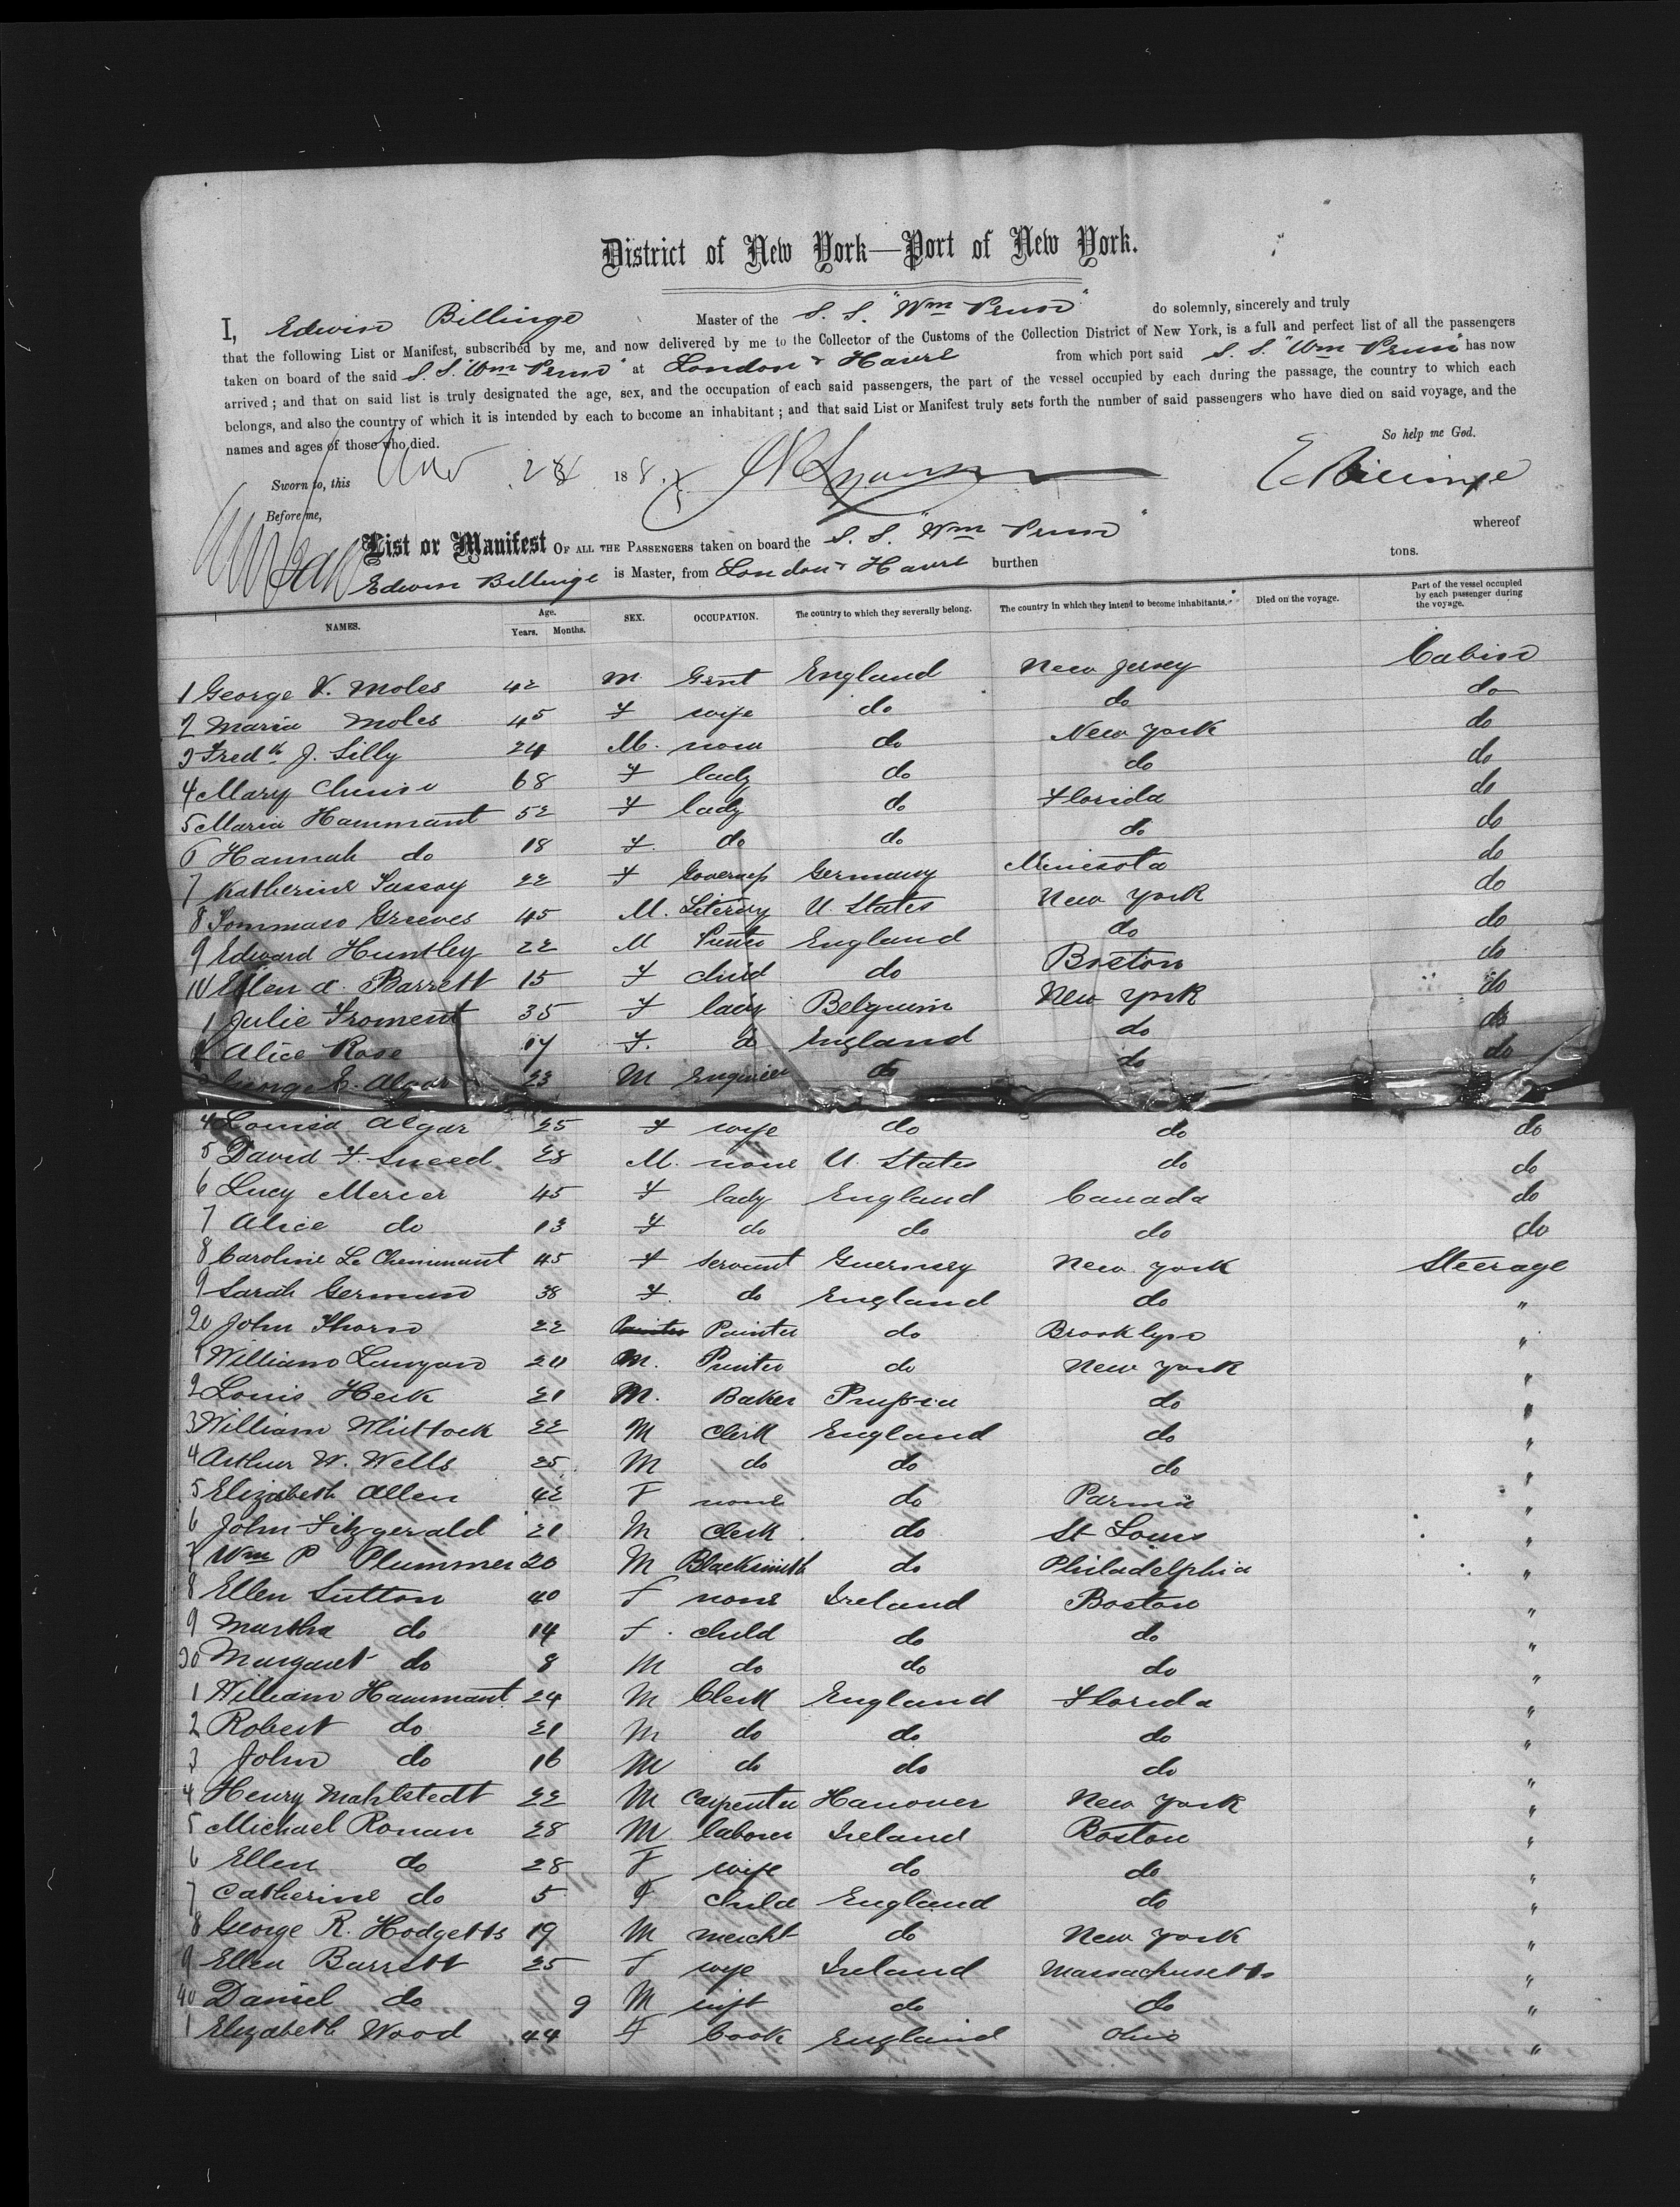 District of New York—Port of New York.
I, Edwin Billinge Master of the S. S. "Wm Penn" do solemnly, sincerely and truly
that the following List or Manifest, subscribed by me, and now delivered by me to the Collector of the Customs of the Collection District of New York, is a full and perfect list of all the passengers
taken on board of the said S. S. "Wm Penn" at London & Havre from which port said S. S. "Wm Penn" has now
arrived; and that on said list is truly designated the age, sex, and the occupation of each said passengers, the part of the vessel occupied by each during the passage, the country to which each
belongs, and also the country of which it is intended by each to become an inhabitant; and that said List or Manifest truly sets forth the number of said passengers who have died on said voyage, and the
names and ages of those who died. So help me God.
Sworn to, this 188 E Billinge
Before me,
List or Manifest OF ALL THE PASSENGERS taken on board the S. S. "Wm Penn" whereof
Edwin Billinge is Master, from London & Havre burthen tons.
NAMES. Age. Years. Months. SEX. OCCUPATION. The country to which they severally belong. The country in which they intend to become inhabitants. Died on the voyage. Part of the vessel occupied by each passenger during the voyage.
1 George V. Moles 42 M. Gent England New Jersey Cabin
2 Maria Moles 45 F wife do do do
3 Fredk J. Lilly 24 M. none do New York do
4 Mary 68 F lady do do do
5 Maria Hammant 52 F lady do Florida do
6 Hannah do 18 F. do do do do
7 Katherine Sassoy 22 F Governess Germany Minesota do
8 Tommaso Greeves 45 M. Literary U. States New York do
9 Edward Huntley 22 M England do do
10 Ellen A. Barrett 15 F child do Boston do
1 Julie Froment 35 F lady Belguim New York do
2 Alice Rose 17 F. do England do do
3 George E. Algar 23 M Engineer do do do
4 Louisa Algar 25 F wife do do do
5 David F. Sneed 28 M. none U. States do do
6 Lucy Mercer 45 F lady England Canada do
7 Alice do 13 F do do do do
8 Caroline Le Cheminant 45 F Servant Guernsey New York Steerage
9 Sarah German 38 F. do England do "
20 John Thorn 22 Painter Painter do Brooklyn "
1 William Lanyon 20 M. Printer do New York "
2 Louis Heck 21 M. Baker Prussia do "
3 William Whittock 22 M Clerk England do "
4 Arthur W. Wells 25 M do do do "
5 Elizabeth Allen 42 F none do Parma "
6 John Fitzgerald 21 M Clerk do St Louis "
7 Wm P Plummer 20 M Blacksmith do Philadelphia "
8 Ellen Sutton 40 F none Ireland Boston "
9 Martha do 14 F. child do do "
30 Margaret do 8 M do do do "
1 William Hammant 24 M Clerk England Florida "
2 Robert do 21 M do do do "
3 John do 16 M do do do "
4 Henry Mahlstedt 22 M Carpenter Hanover New York "
5 Michael Ronan 28 M laborer Ireland Boston "
6 Ellen do 28 F wife do do "
7 Catherine do 5 F child England do "
8 George R. Hodgetts 19 M mercht do New York "
9 Ellen Barrett 25 F wife Ireland Massachusetts "
40 Daniel do 9 M inft do do "
1 Elizabeth Wood 44 F Cook England Ohio "